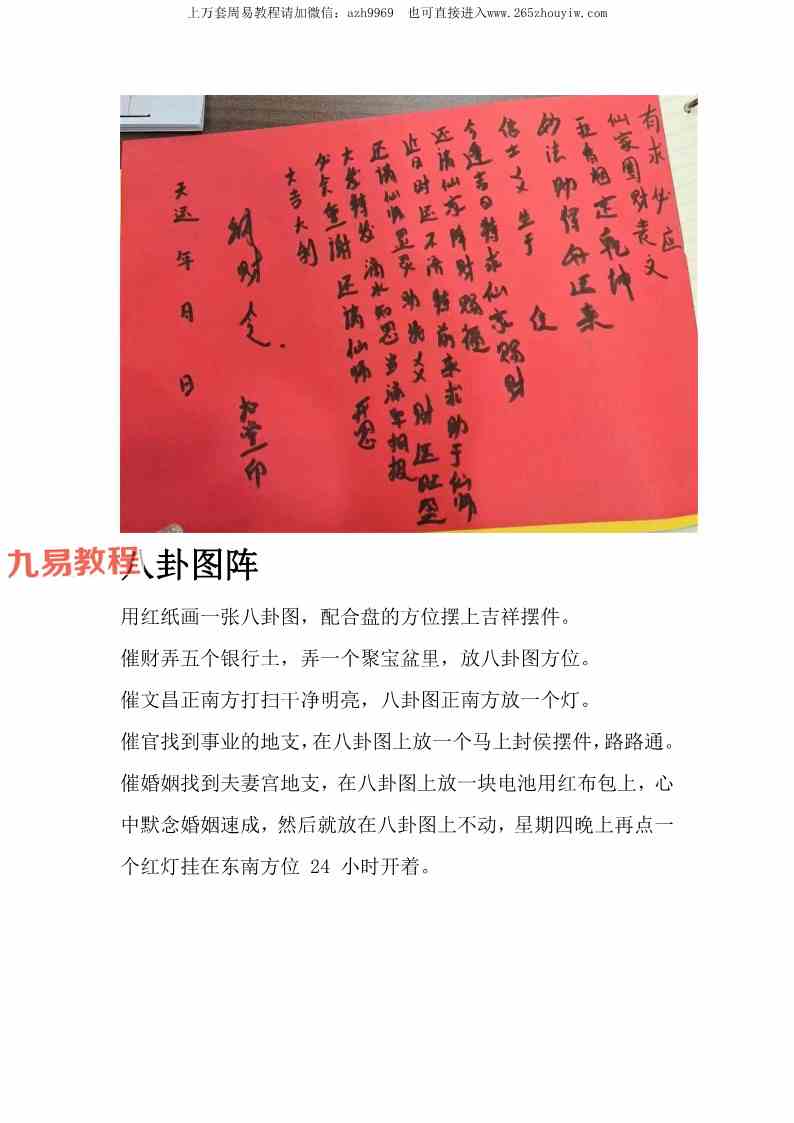 上万套周易教程请加微信：azh9969　也可直接进入www.265zhouyiw.com
有求必应
仙家围财表文
五台招定乾坤
妙法助你好运来
信士 文 生于　住
今逢吉日特求仙家赐财
还请仙家降财赐福
近日时运不济特前来求助于仙师
还请仙师显灵助我 文 财运旺盛
大发特发 滴水知恩当涌泉相报
必会重谢 还请仙师开恩
大吉大利
财令
天运 年 月 日
九易教程
八卦图阵
用红纸画一张八卦图，配合盘的方位摆上吉祥摆件。
催财弄五个银行土，弄一个聚宝盆里，放八卦图方位。
催文昌正南方打扫干净明亮，八卦图正南方放一个灯。
催官找到事业的地支，在八卦图上放一个马上封侯摆件，路路通。
催婚姻找到夫妻宫地支，在八卦图上放一块电池用红布包上，心
中默念婚姻速成，然后就放在八卦图上不动，星期四晚上再点一
个红灯挂在东南方位 24 小时开着。